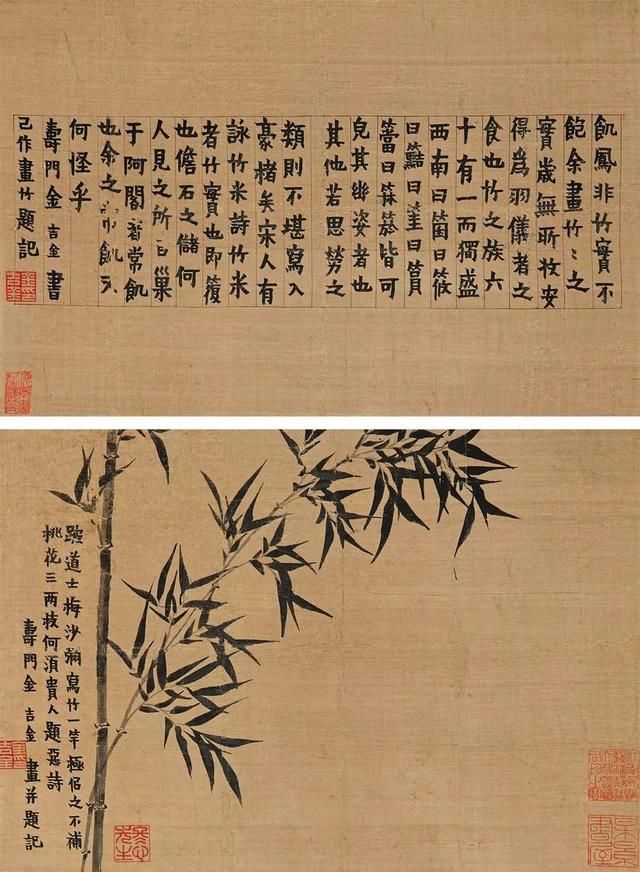 飢鳳非竹實不
飽余畫竹〻之
實歲無所收安
得為羽儀者之
食也竹之族六
十有一而獨盛
西南曰箘曰筱
曰曰曰篔
簹曰箖箊皆可
皃其幽姿者也
其他若思簩之
類則不堪寫入
豪楮矣宋人有
詠竹米詩竹米
者竹實也即
也儋石之儲何
人見之所云巢
于阿閣者常飢
也余之飢又
何怪乎
壽門金吉金書
己作畫竹題記
道士梅沙彌寫竹一竿極侶之不補
桃花三兩枝何須貴人題惡詩
壽門金吉金畫并題記
冬心先生